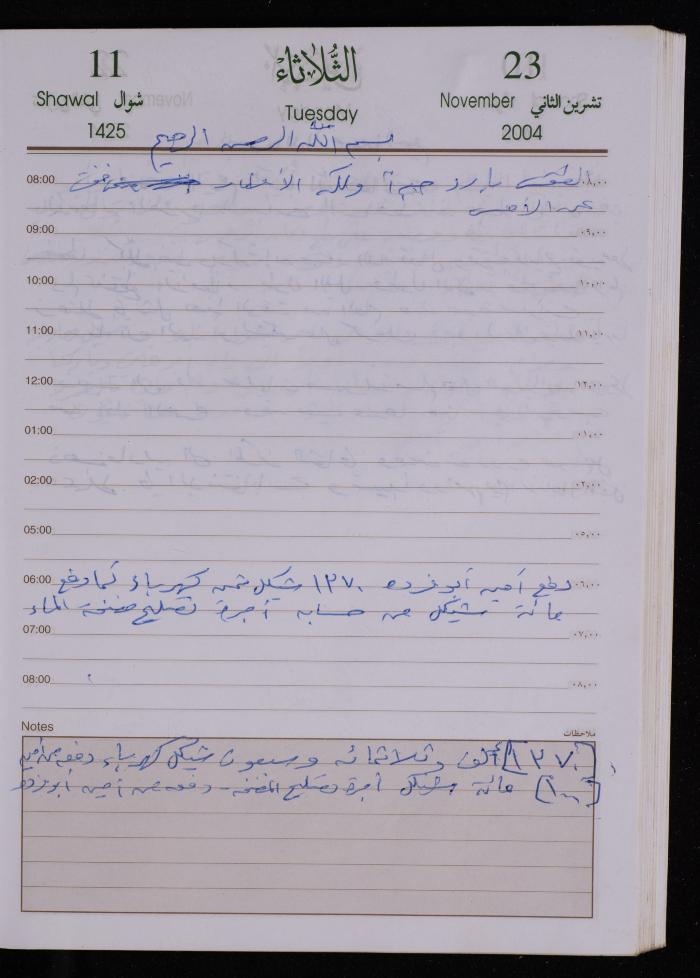 11 الثلاثاء 23
Shawal شوال Tuesday November تشرين الثاني
1425 2004
بسم الله الرحمن الرحيم
08:00 الطقس بارد جداً ولكن الأمطار خفت ٠٨,٠٠
عن الأمس
09:00 ٠٩,٠٠
10:00 ١٠,٠٠
11:00 ١١,٠٠
12:00 ١٢,٠٠
01:00 ٠١,٠٠
02:00 ٠٢,٠٠
05:00 ٠٥,٠٠
06:00 دفع أمين أبو فرده ١٣٧٠ شيكل ثمن كهرباء كما دفع ٠٦,٠٠
مائة شيكل من حسابه أجرة تصليح مضخة الماء
07:00 ٠٧,٠٠
08:00 ٠٨,٠٠
Notes ملاحظات
[١٣٧٠] ألف وثلاثمائه وسبعون شيكل كهرباء دفعه من أمين
[١٠٠] مائة شيكل أجرة تصليح المضخة - دفعه من أمين أبو فرده